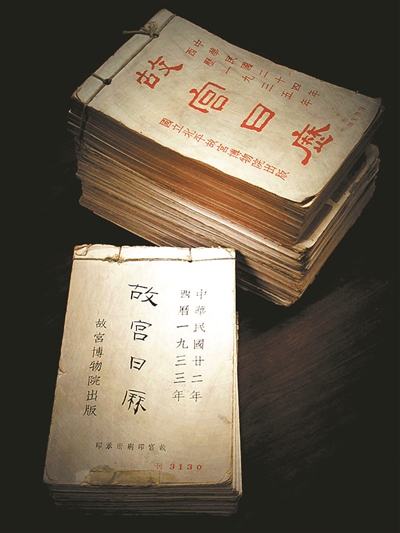 中華民國二十四年
西曆一九三五年
故宮日厤
國立北平故宮博物院出版
中華民國廿二年
西曆一九三三年
故宮日厤
故宮博物院出版
故宮印刷所承印
3130